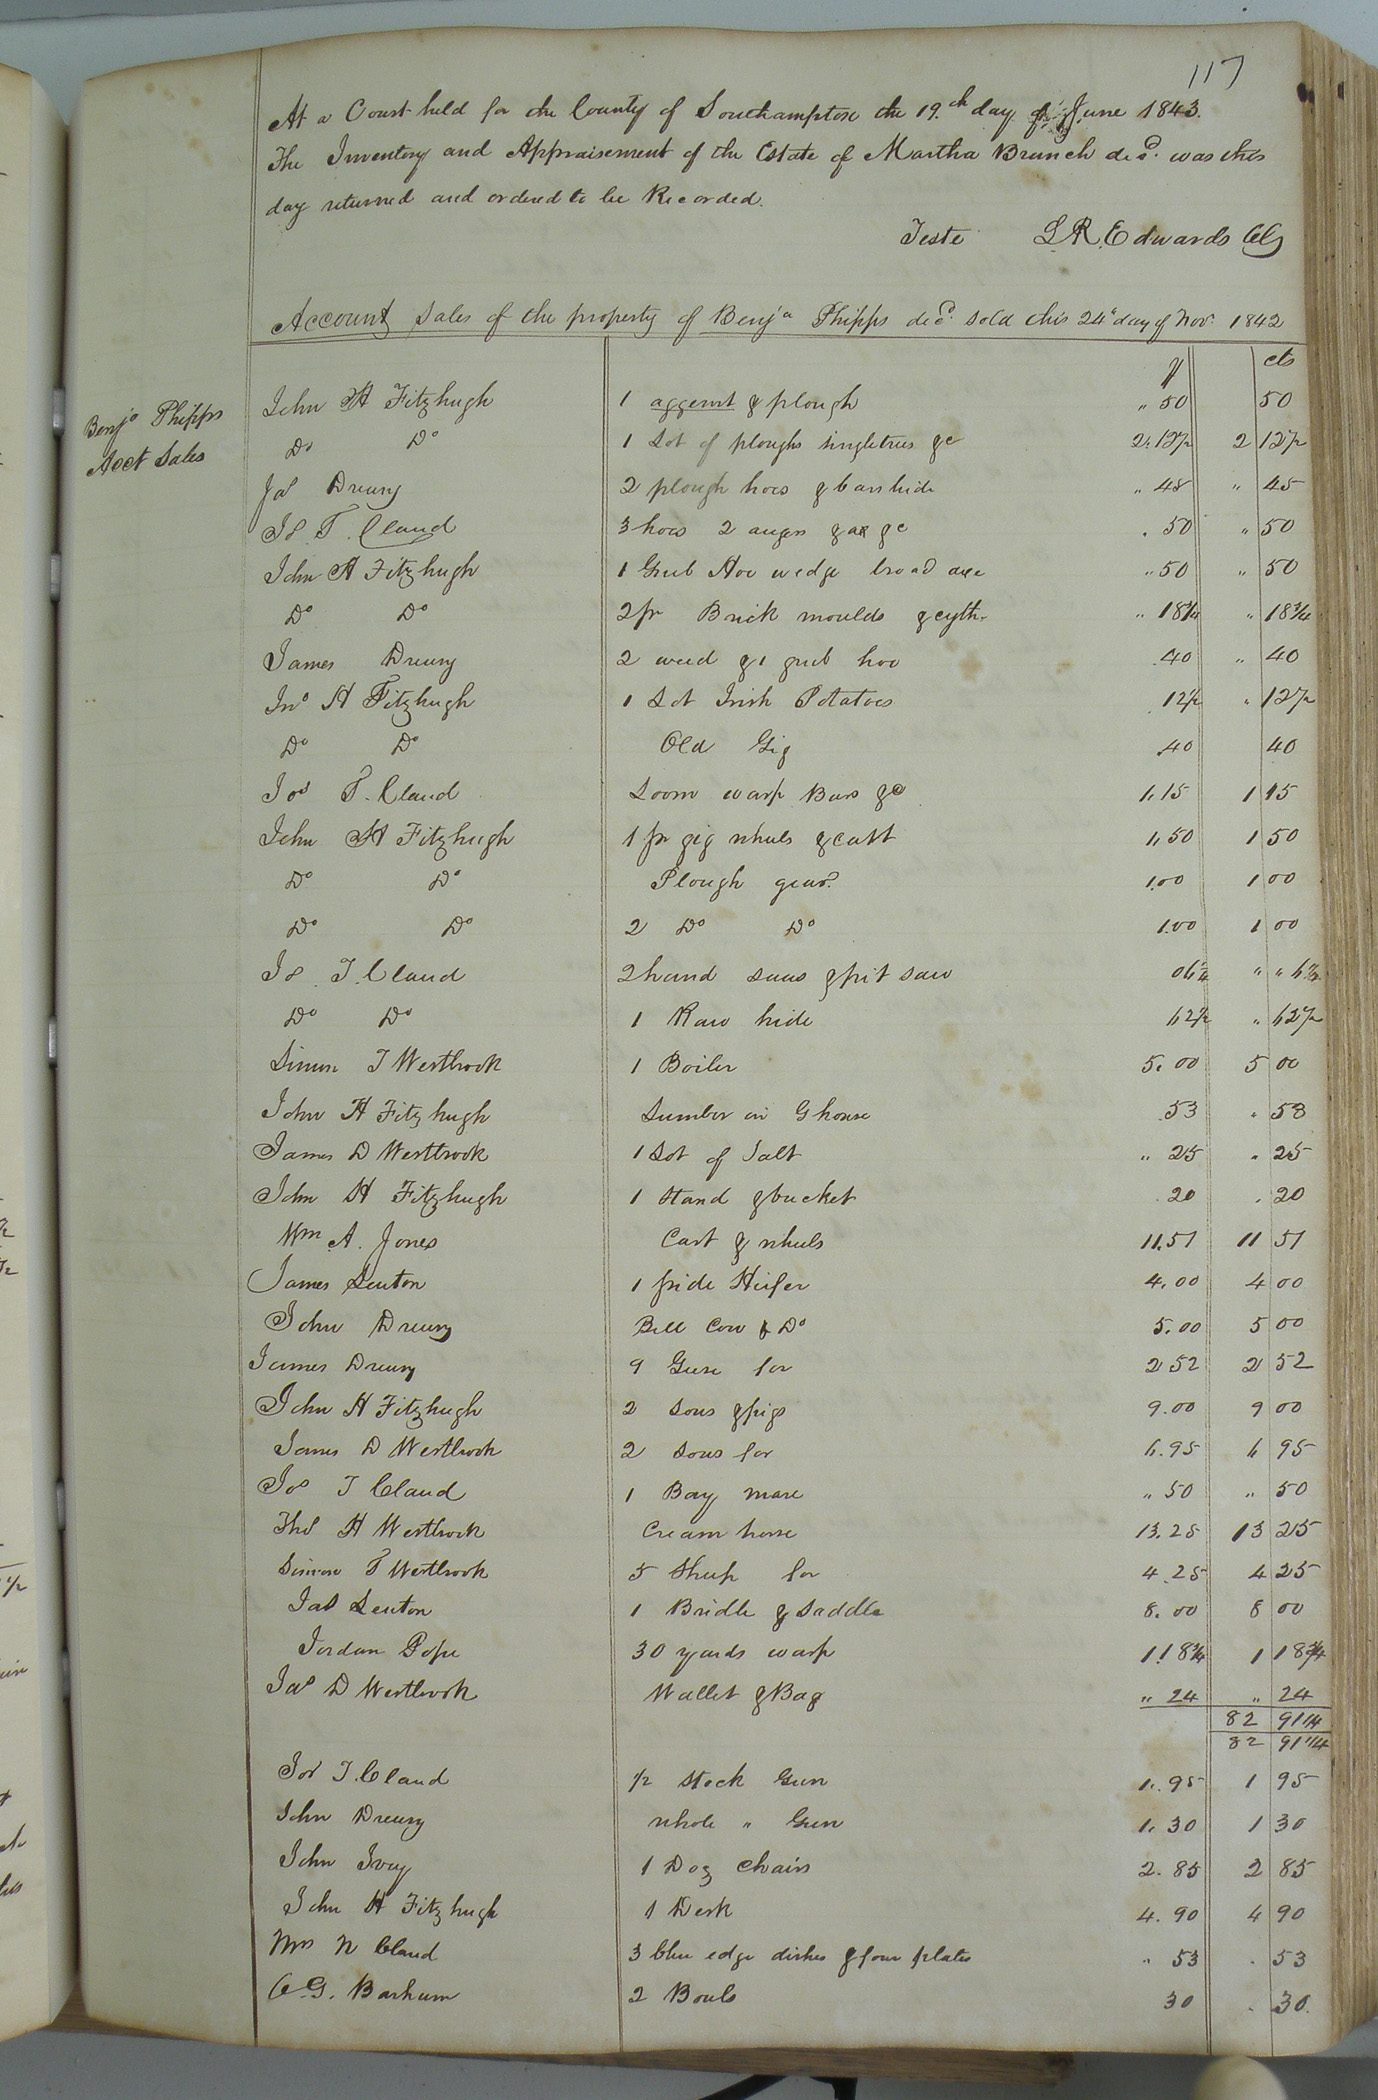 117
At a Court held for the County of Southampton the 19.th day of June 1843.
The Inventory and Appraisement of the Estate of Martha Branch decd. was this
day returned and ordered to be Recorded.
Teste L.R. Edwards Clk
Account Sales of the property of Benja Phipps decd. sold this 24th day of Nov. 1842
$ cts
Benja Phipps
Acct Sales
John H Fitzhugh 1 aggernt & plough " 50 50
Do Do 1 Lot of ploughs singletrees &c 2.12 1/2 2 12 1/2
Jas Drewry 2 plough hoes & bars hide " 45 " 45
Js. T. Claud 3 hoes 2 augers & ax &c . 50 " 50
John H Fitzhugh 1 Grub Hoe wedge broad axe " 50 " 50
Do Do 2 pr Brick moulds & cyth. " 18 3/4 " 18 3/4
James Drewry 2 weed & 1 grub hoe .40 " 40
Jno H Fitzhugh 1 Lot Irish Potatoes .12 1/2 " 12 1/2
Do Do Old Gig .40 40
Jos T. Claud Loom warp Bars &c 1.15 1 15
John H Fitzhugh 1 pr gig wheels & catt 1.50 1 50
Do Do Plough gear. 1.00 1 00
Do Do 2 Do Do 1.00 1 00
Js. T. Claud 2 hand saws & pit saw 06 1/4 " " 6 1/4
Do Do 1 Raw hide 62 1/2 " 62 1/2
Simon T Westbrook 1 Boiler 5.00 5 00
John H Fitzhugh Lumber in G house .53 . 53
James D Westbrook 1 Lot of Salt " 25 " 25
John H Fitzhugh 1 Stand & bucket . 20 . 20
Wm A. Jones Cart & wheels 11.51 11 51
James Lenton 1 pide Heifer 4.00 4 00
John Drewry Bell Cow & Do 5.00 5 00
James Drewry 9 Geese for 2 52 2 52
John H Fitzhugh 2 Sows & pigs 9.00 9 00
James D Westbrook 2 Sows for 6.95 6 95
Jos T Claud 1 Bay mare " 50 " 50
Thos H Westbrook Cream horse 13.25 13 25
Simon T Westbrook 5 Sheep for 4.25 4 25
Jas Lenton 1 Bridle & Saddle 8.00 8 00
Jordan Pope 30 yards warp 1.18 3/4 1 18 3/4
Jas D Westbrook Wallet & Bag " 24 " 24
82 91 1/4
82 91 1/4
Jos T. Claud 1/2 Stock Gun 1.95 1 95
John Drewry whole " Gun 1.30 1 30
John Ivey 1 Doz Chairs 2.85 2 85
John H Fitzhugh 1 Desk 4.90 4 90
Mrs N Claud 3 blue edge dishes & four plates " 53 . 53
C.G. Barham 2 Bouls 30 . 30.